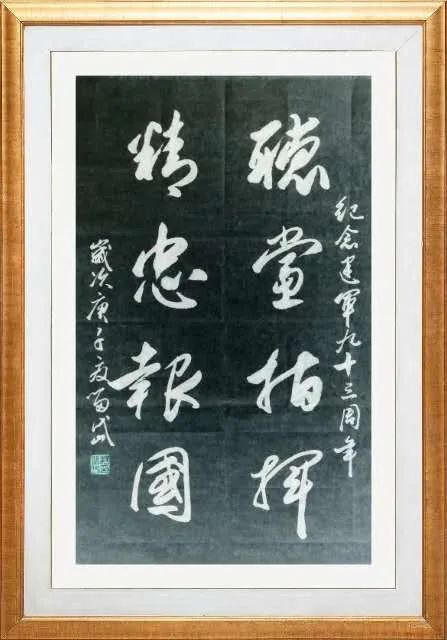 紀念建軍九十三周年
聽黨指揮
精忠報國
歲次庚子夏